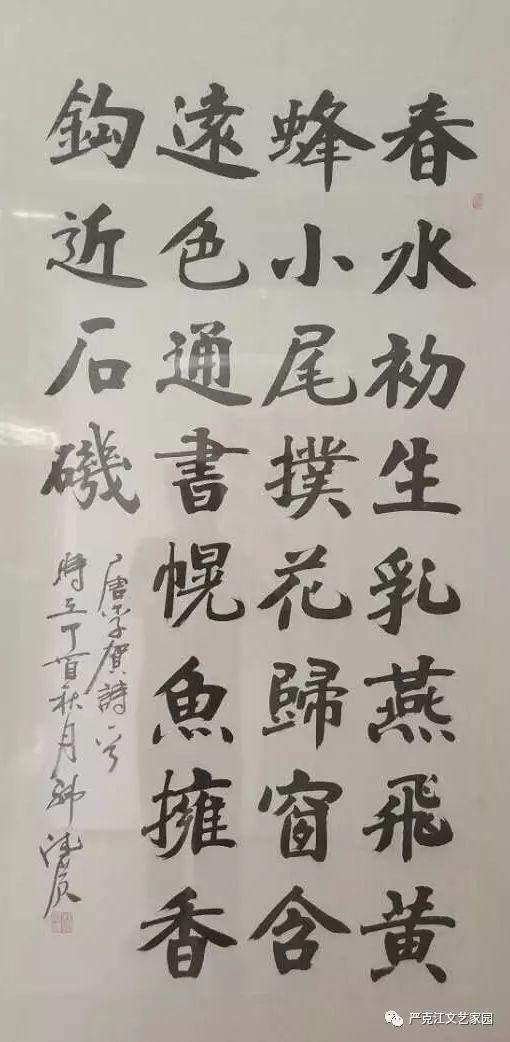 春水初生乳燕飛黄
蜂小尾撲花歸窗含
遠色通書幌魚擁香
鈎近石磯
唐李賀詩一首
時在丁酉秋月
严克江文艺家园